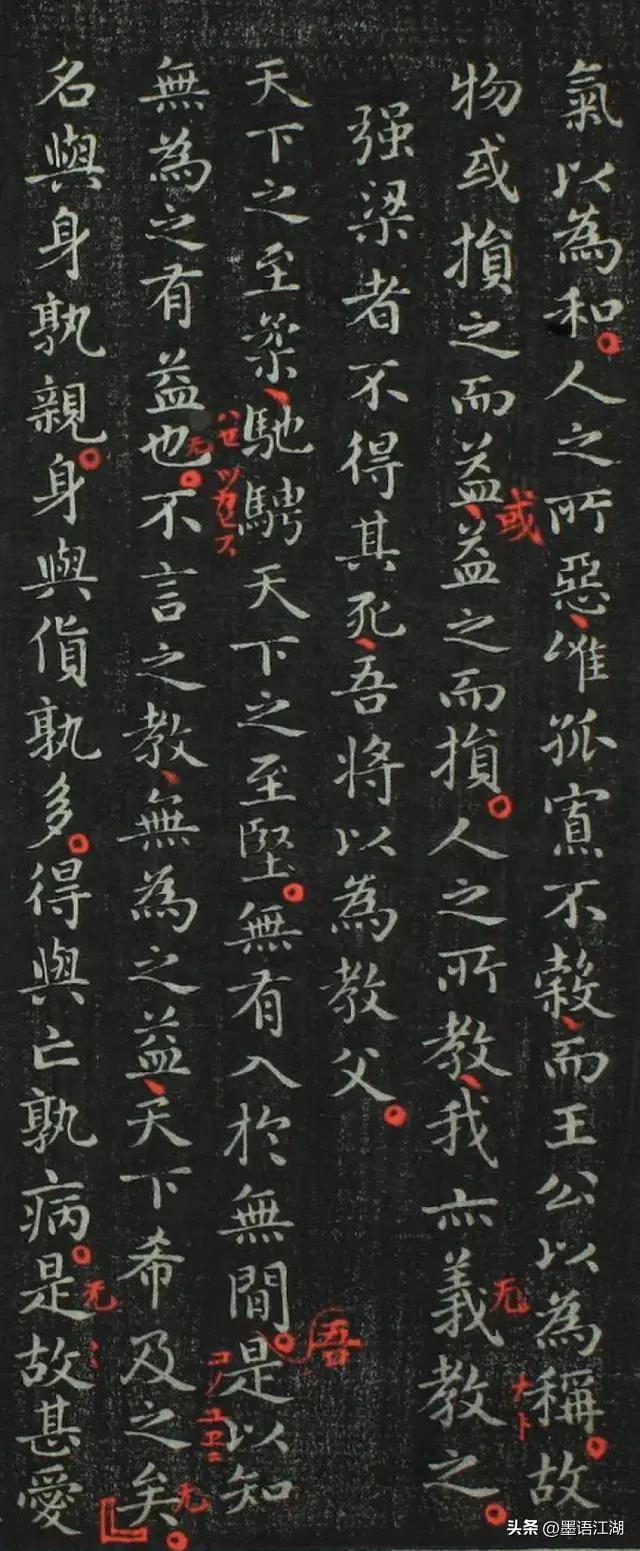 氣以為和。人之所惡、唯孤寡不穀、而王公以為稱。故
物或損之而益、益之而損。人之所教、我亦義教之。
强梁者不得其死、吾將以為教父。
天下之至柔、馳騁天下之至堅。無有入於無間。是以知
無為之有益也。不言之教、無為之益、天下希及之矣。
名與身孰親。身與貨孰多。得與亡孰病。是故甚愛
或
无
吾
コノユエニ
无
无
无
头条 @墨语江湖